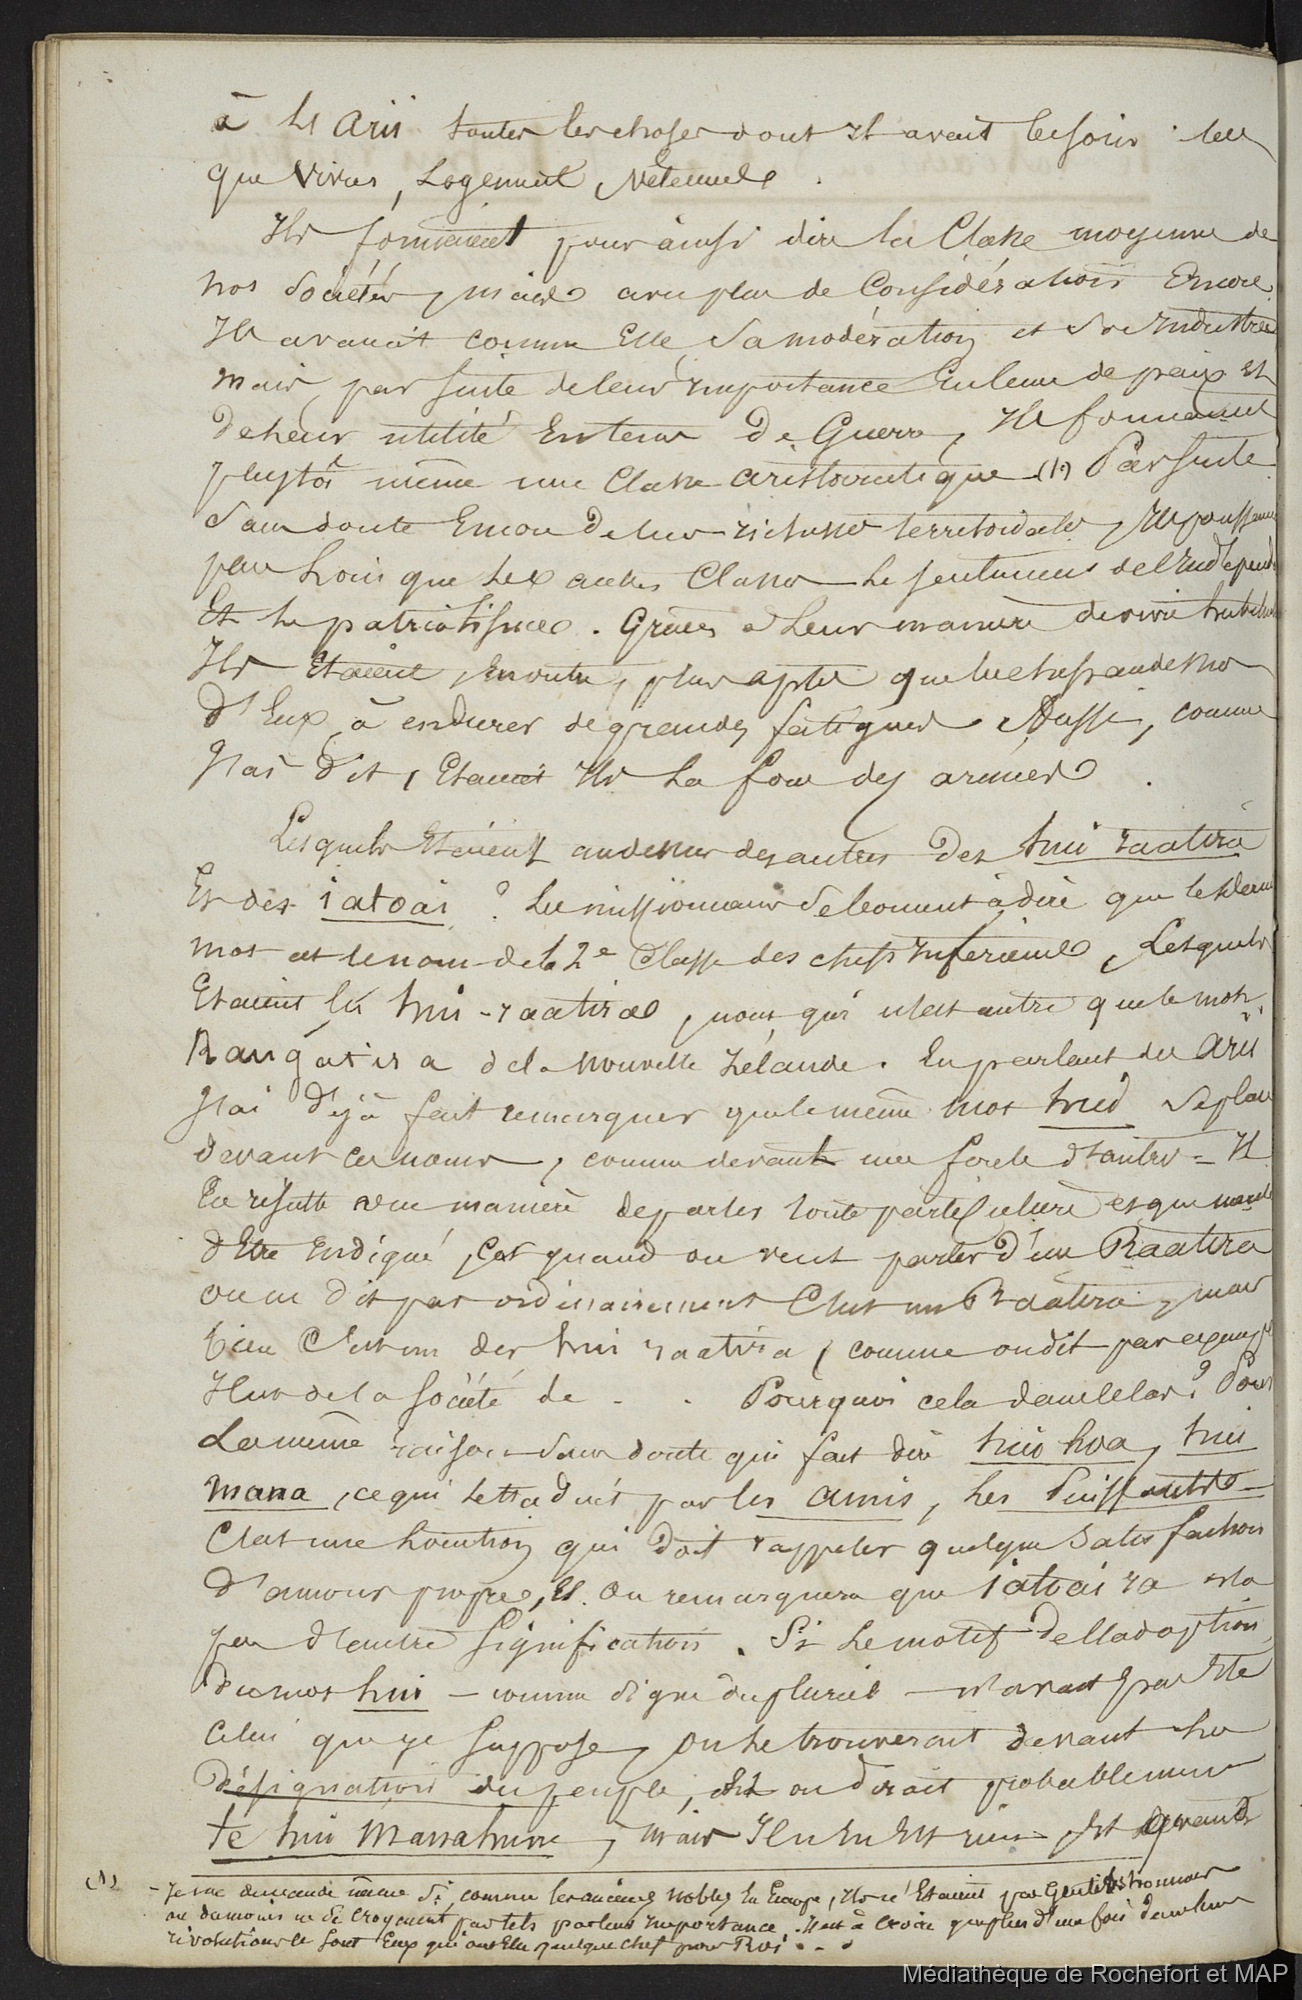 à les arii toutes les choses dont ils avaient besoin tels
que vivres, Logement, vêtements.
Ils formaient pour ainsi dire la Classe moyenne de
nos Sociétés, mais avec plus de Considération Encore.
Ils avaient comme Elle, Sa modération et Son Industrie
mais, par suite de leur importance En temps de paix et
de leur utilité En temps de Guerre, Ils formaient
plustôt même une Classe aristocratique (1) Par suite
Sans doute Encore de leurs richesses territoriales, Ils poussaient
plus loin que les autres Classes le sentiment de l'Indépend
Et le patriotisme. Grâces à Leur manière de vivre
Ils Etaient, En outre, plus aptes que les chefs au dessus
d'Eux, à endurer de grandes fatigues Aussi, comme
J'lai dit, Etaient Ils La force des armées.
Lesquels Etaient au dessus des autres des hui raatira
Et des iatoai ? Les missionnaires se bornent à dire que le dernier
mot est le nom de la 2e Classe des chefs Inférieurs, Lesquels
Etaient les hui-raatiras, nom qui n'est autre que le mot
Rangatira de la Nouvelle Zélande. En parlant des Arii
J'ai déjà fait remarquer que le même mot hui se place
devant ces noms, comme devant une foule d'autres = Il
En résulte une manière de parler toute particulière et qui mérite
d'Etre Indiqué, Car quand on veut parler d'un Raatira
on ne dit pas ordinairement C'est un Raatira, mais
bien C'est un des hui raatira (comme on dit par exemple
Il est de la Société de . . Pourquoi cela ? Pour
La même raison Sans doute qui fait dire hui hoa, hui
mana, ce qui se traduit par les amis, les Puissants
C'est une locution qui doit rappeler quelque Satisfaction
d'amour propre, Et on remarquera que iatoai n'a
pas d'autre Signification. Si le motif de l'adoption
du mot hui — comme signe du pluriel — n'avait pas Eté
Celui que je Suppose, on le trouverait devant la
désignation du peuple, et on dirait probablement
te hui Manahune, mais Il n'en Est rien, Et quand
(1) - Je me demande même Si, comme les anciens Nobles En Europe, Ils n'Etaient pas Gentilshommes
ou du moins ne se croyaient pas tels par leur Importance. Il est à croire que plus d'une fois dans leurs
révolutions ce sont Eux qui ont Elu quelque chef pour Roi . . .
Médiathèque de Rochefort et MAP